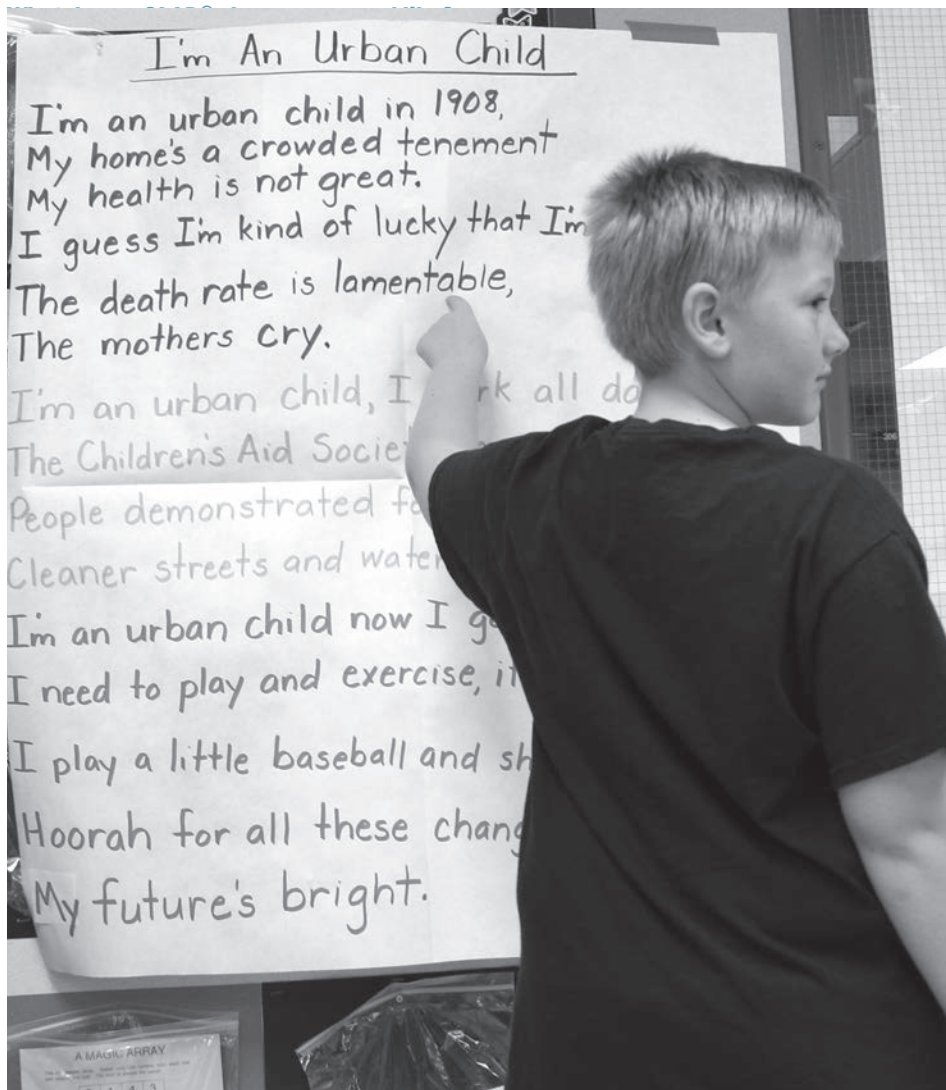 I'm An Urban Child
I'm an urban child in 1908,
My home's a crowded tenement
My health is not great.
I guess I'm kind of lucky that I'm
The death rate is lamentable,
The mothers cry.
I'm an urban child, I all
The Children's Aid
People demonstrated
Cleaner streets and
I'm an urban child now I
I need to play and exercise,
I play a little baseball and
Hoorah for all these
My future's bright.
A MAGIC ARRAY